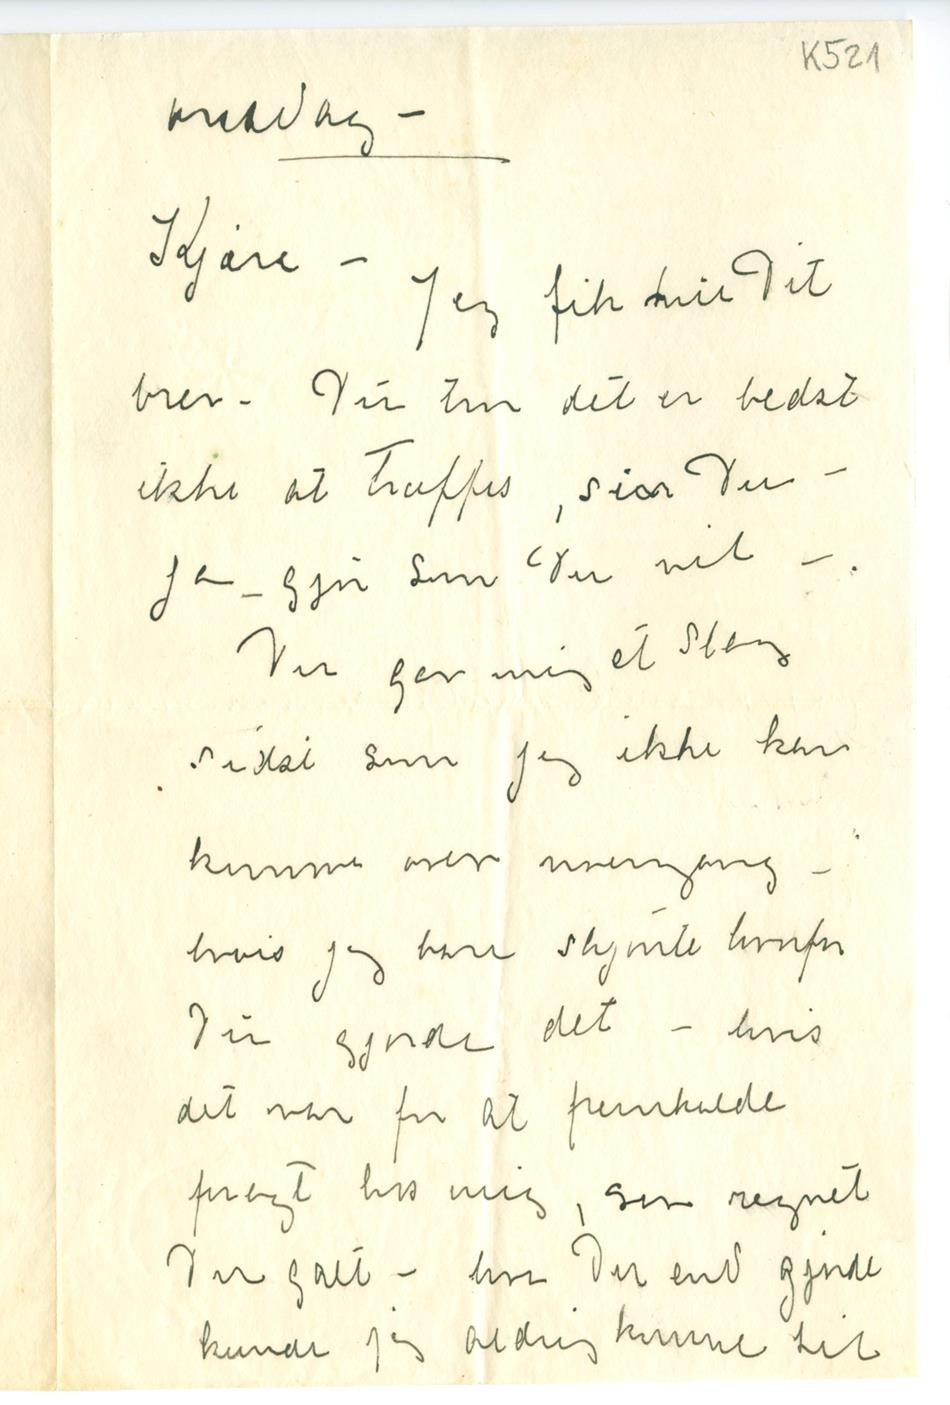 K521
onsdag –
Kjære –
Jeg fik Dit
brev – Du tror det er bedst
ikke at træffes, sier Du –
Ja – gjør som Du vil – .
Du gav mig et slag
sidst som jeg ikke kan
komme over noengang –
hvis jeg bare skjønte hvorfor
Du gjorde det – hvis
det var for at fremkalde
foragt hos mig, saa regnet
Du galt – hva Du end gjorde
kunde jeg aldrig komme til